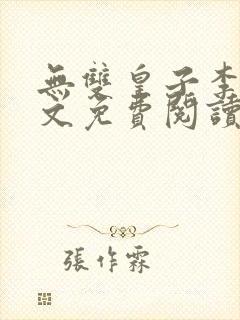 無雙皇子李
文免費閱讀
張作霖